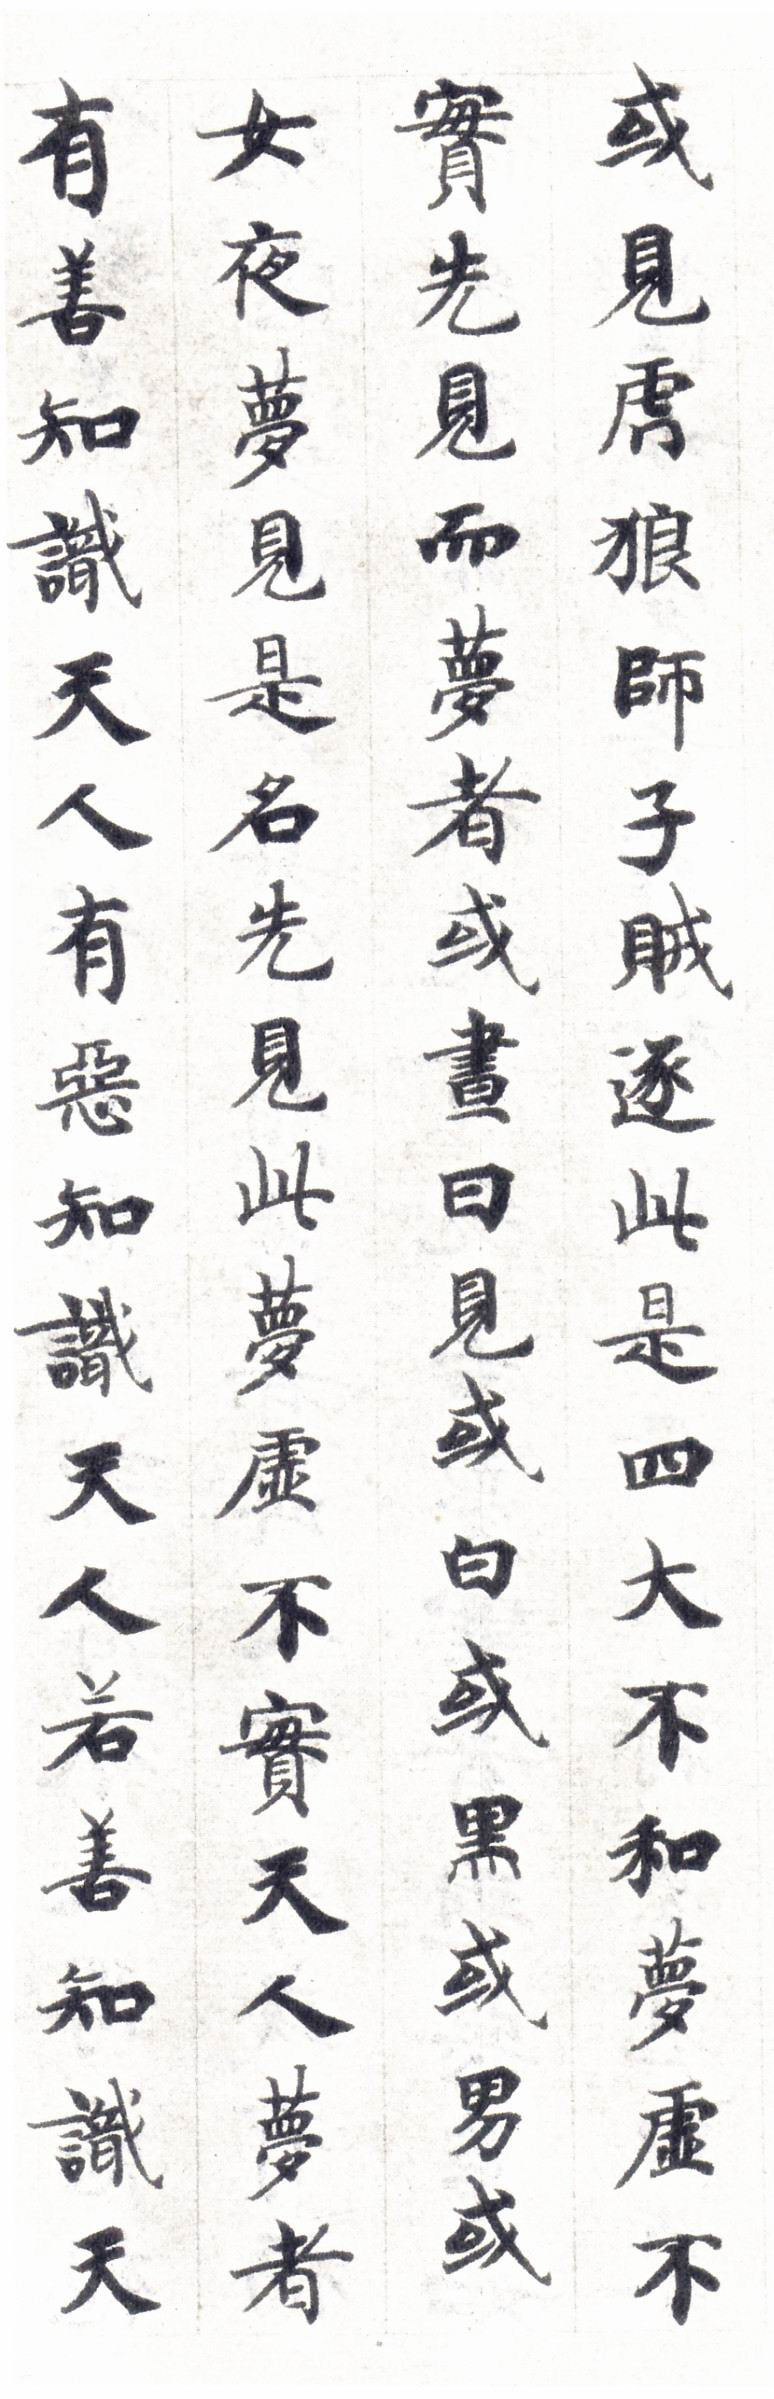 或見虎狼師子賊逐此是四大不和夢虛不
實先見而夢者或晝日見或白或黑或男或
女夜夢見是名先見此夢虛不實天人夢者
有善知識天人有惡知識天人若善知識天